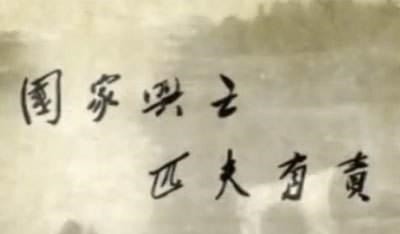 國家興亡
匹夫有責